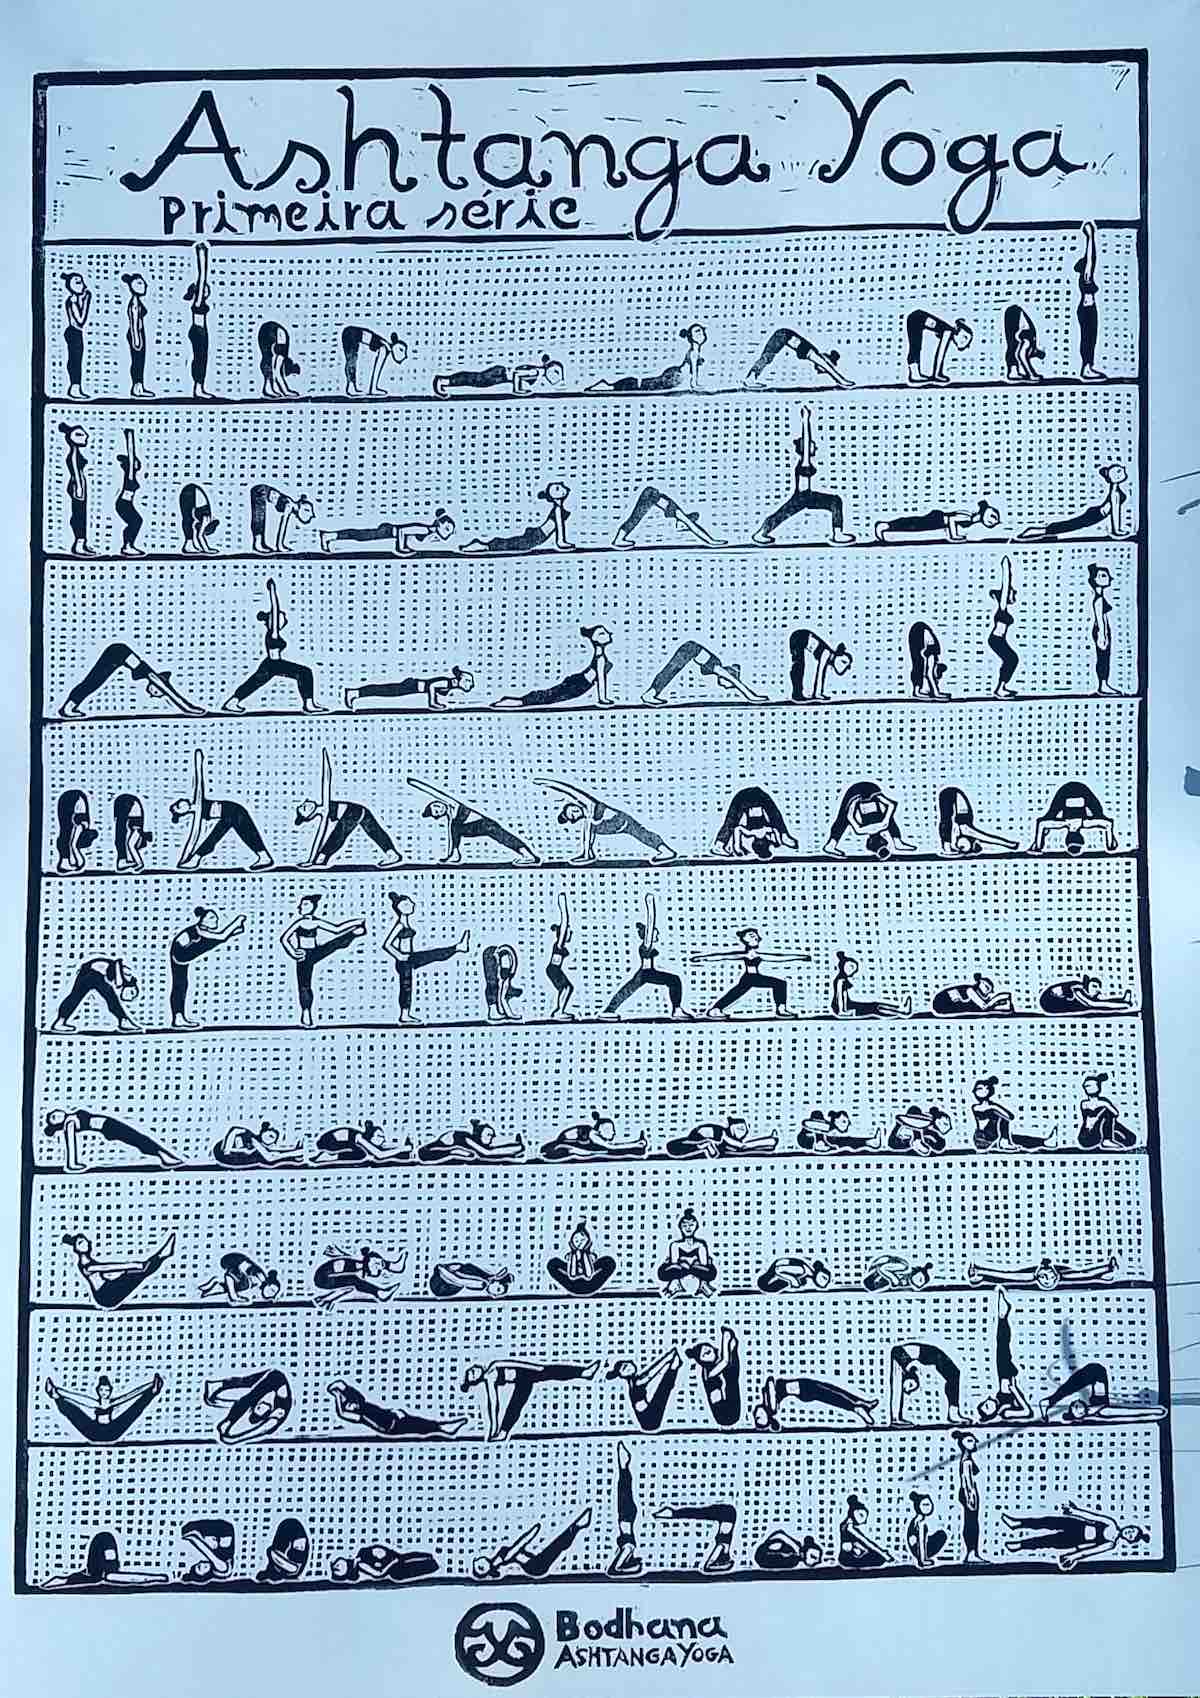 Ashtanga Yoga
Primeira série
Bodhana
ASHTANGA YOGA